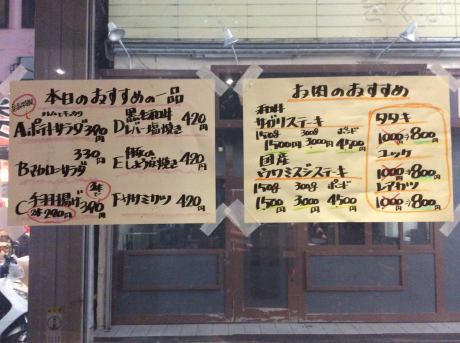 本日のおすすめの一品
Aポテトサラダ390円
330円
Bマカロニサラダ
3本
C手羽揚げ390円
2本290円
黒毛和牛
Dレバー塩焼き420円
Eしょうゆ焼き420円
Fハツサミヤツ420円
お肉のおすすめ
和牛
サガリステーキ
150g 300g ポンド
1500円 3000円 4500円
国産
トウガラミスジステーキ
150g 300g ポンド
1500円 3000円 4500円
タタキ
1000円→800円
ユッケ
1000円→800円
レアカツ
1000円→800円